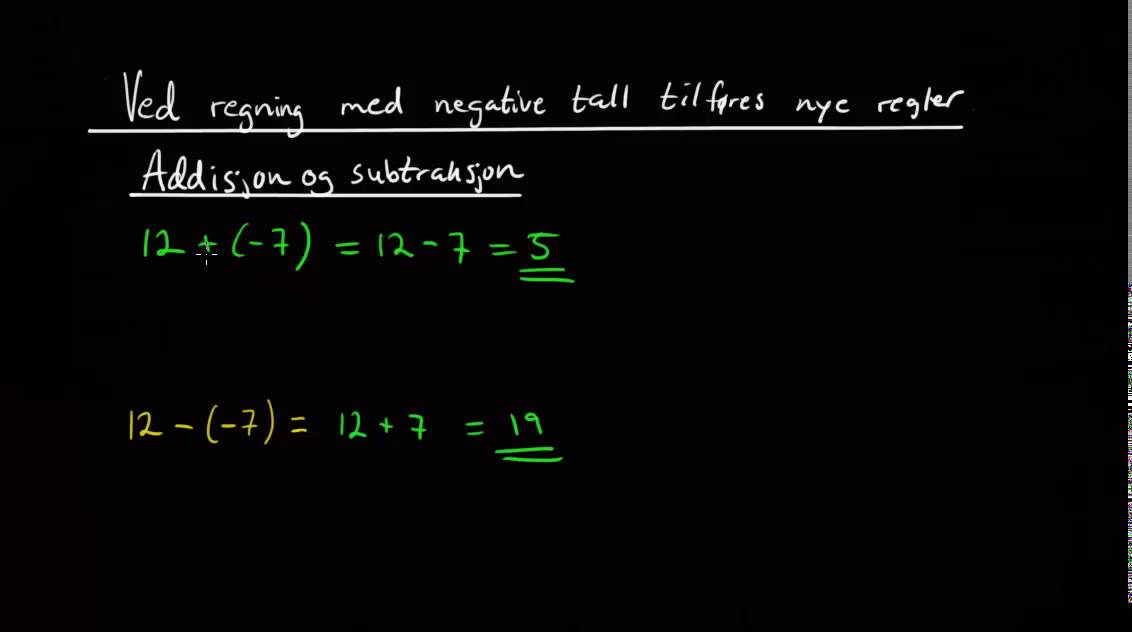 Ved regning med negative tall tilføres nye regler
Addisjon og subtraksjon
12 + (-7) = 12 - 7 = 5
12 - (-7) = 12 + 7 = 19